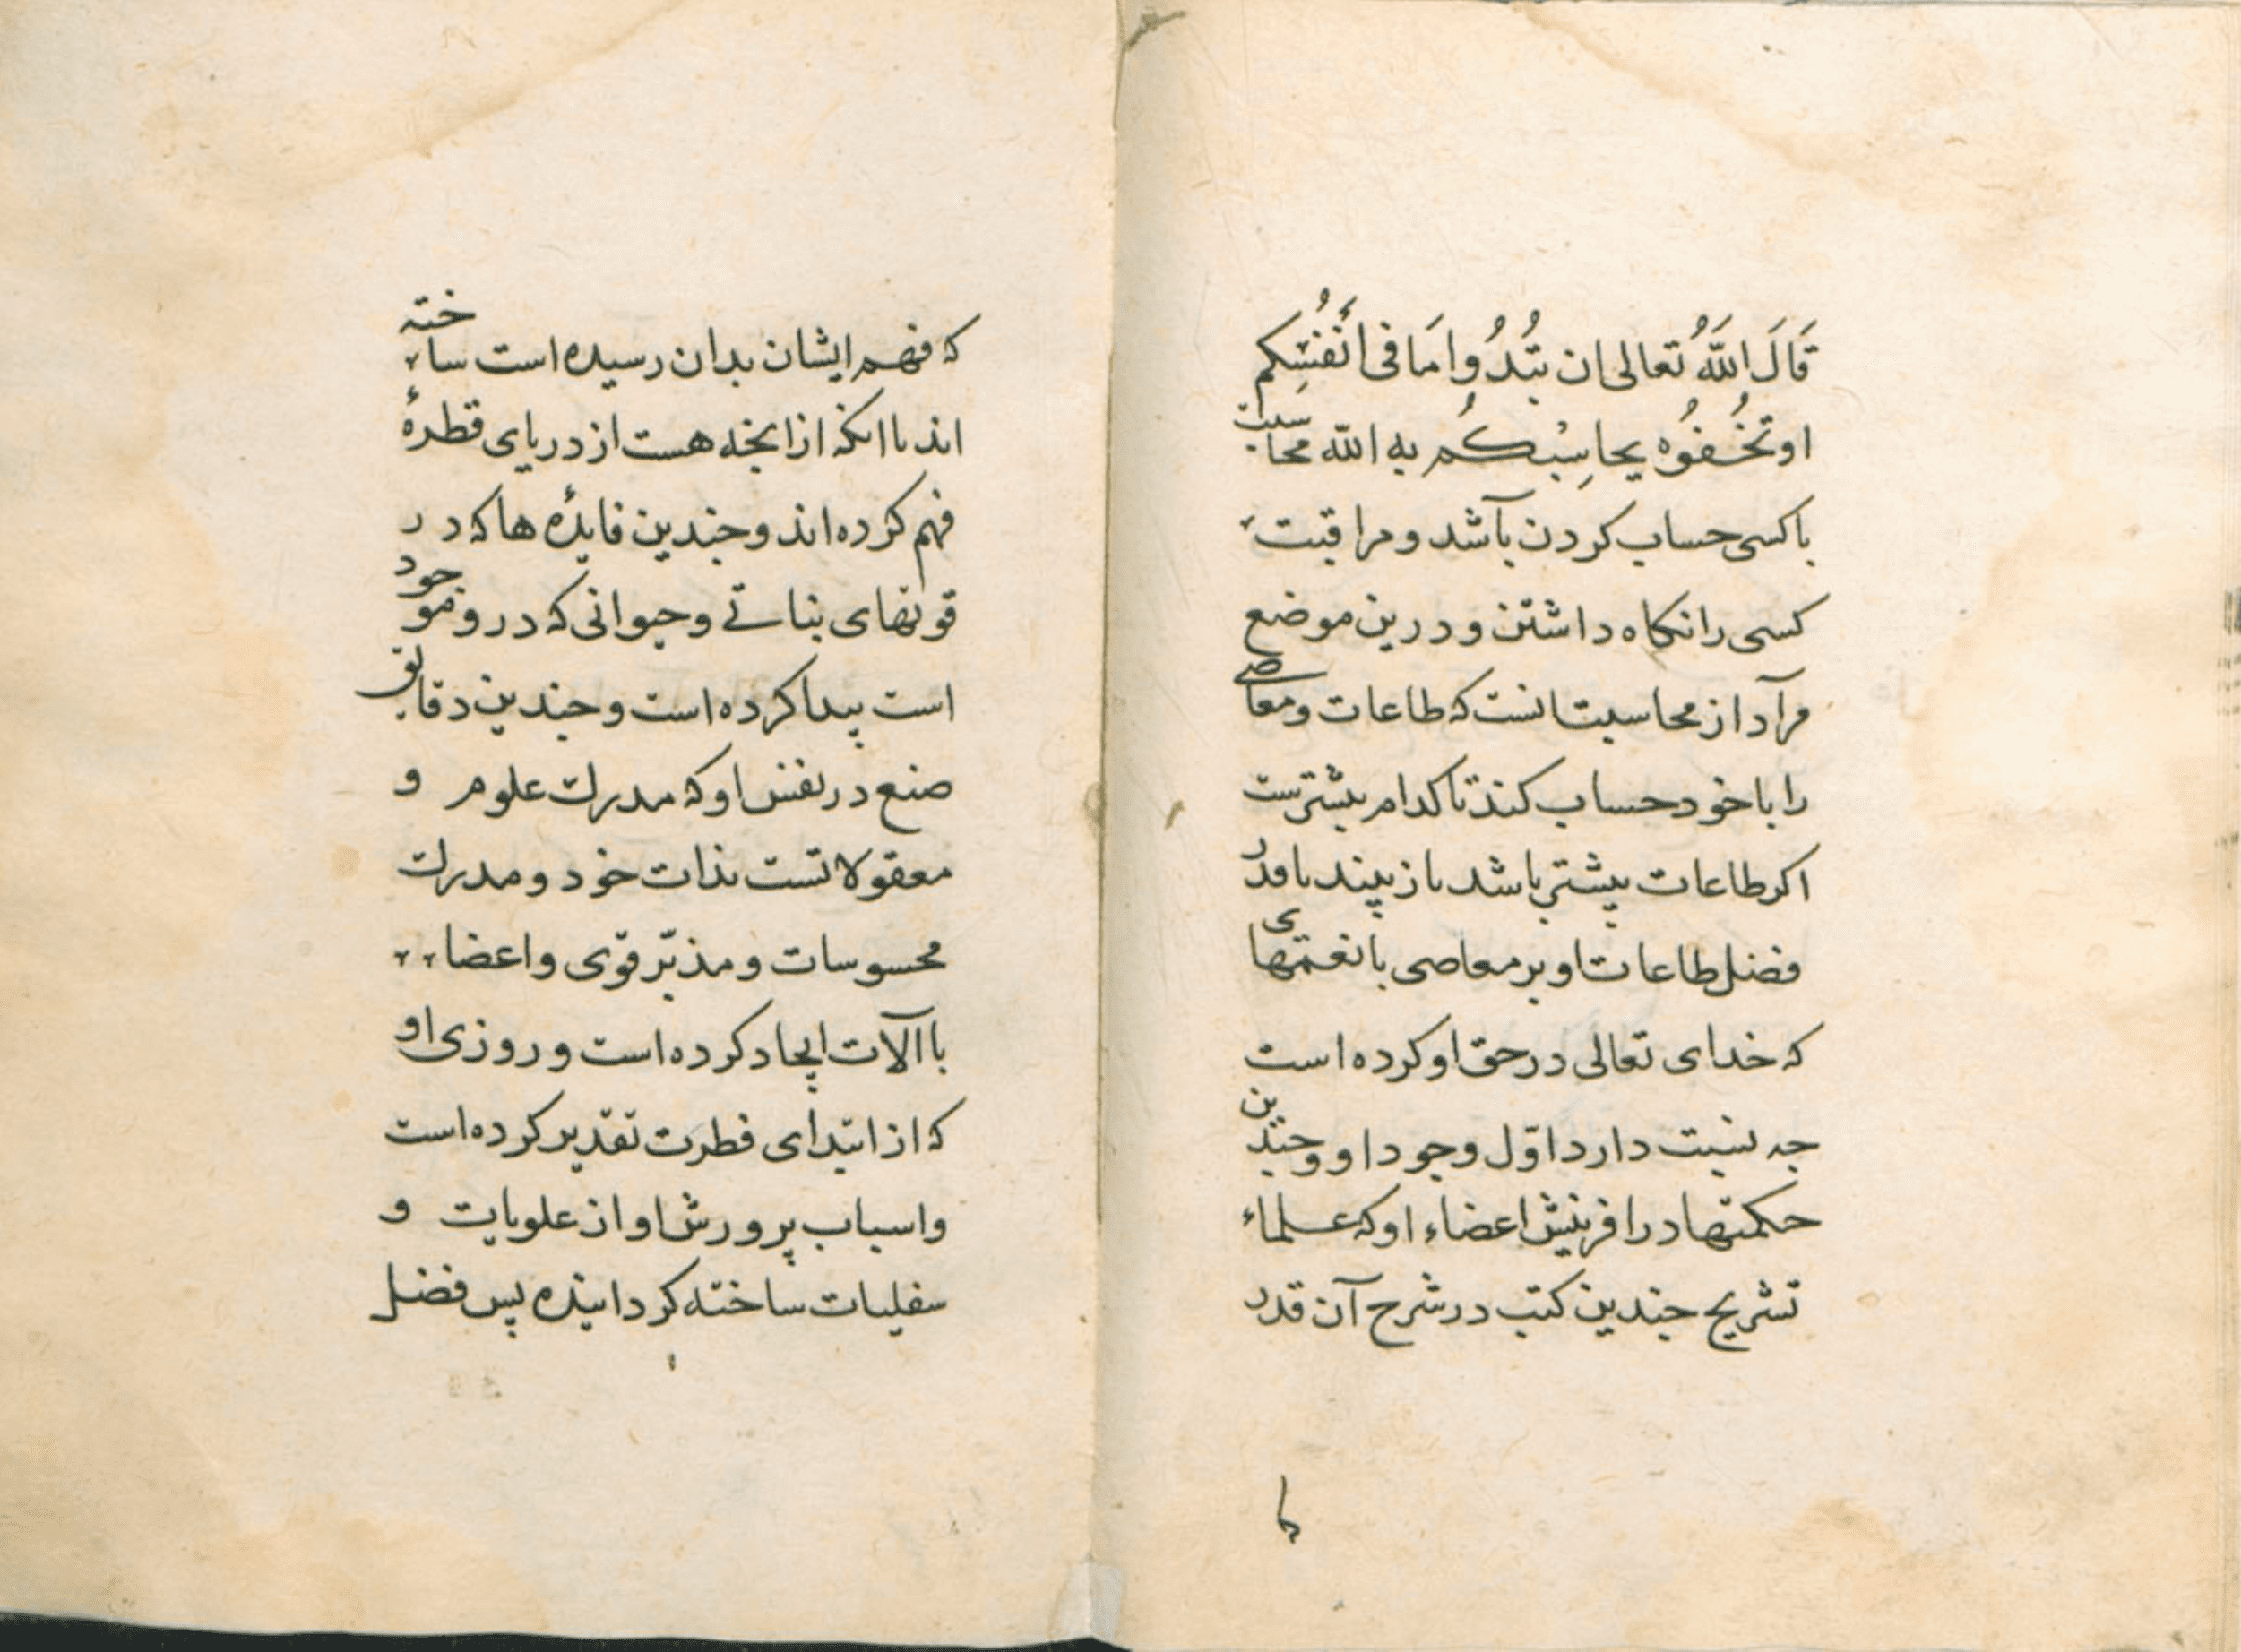 قَالَ اللّهُ تعالی ان تبُدُوا مَا فی اَنْفُسِکم
او تخُفُوُه یحاسِبْکُم به الله محاسبت
با کسی حساب کردن باشد و مراقبت
کسی را نکاه داشتن و درین موضع
مرآد از محاسبت انست که طاعات و معاصی
را با خود حساب کند تا کدام بیشترست
اکر طاعات بیشتر باشد باز بیند با قدر
فضل طاعات او بر معاصی با نعمتهای
که خدای تعالی در حق او کرده است
جه نسبت دارد اوّل وجود او و جندین
حکمتها در افرینش اعضاء او که علماء
تشریح جندین کتب در شرح آن قدر
که فهم ایشان بدان رسیده است ساخته
اند با انکه از انجه هست از دریای قطرهٔ
فهم کرده اند و جندین فایدٔه ها که در
قوتهای نباتی و حیوانی که در و موجود
است پیدا کرده است و جندین دقایق
صنع در نفس او که مدرک علوم و
معقولاتست بذات خود و مدرک
محسوسات و مدبّر قوی و اعضا
با آلات ایجاد کرده است و روزی او
که از ابتدای فطرت تقدیر کرده است
و اسباب پرورش او از علویات و
سفلیات ساخته کردانیده پس فضل